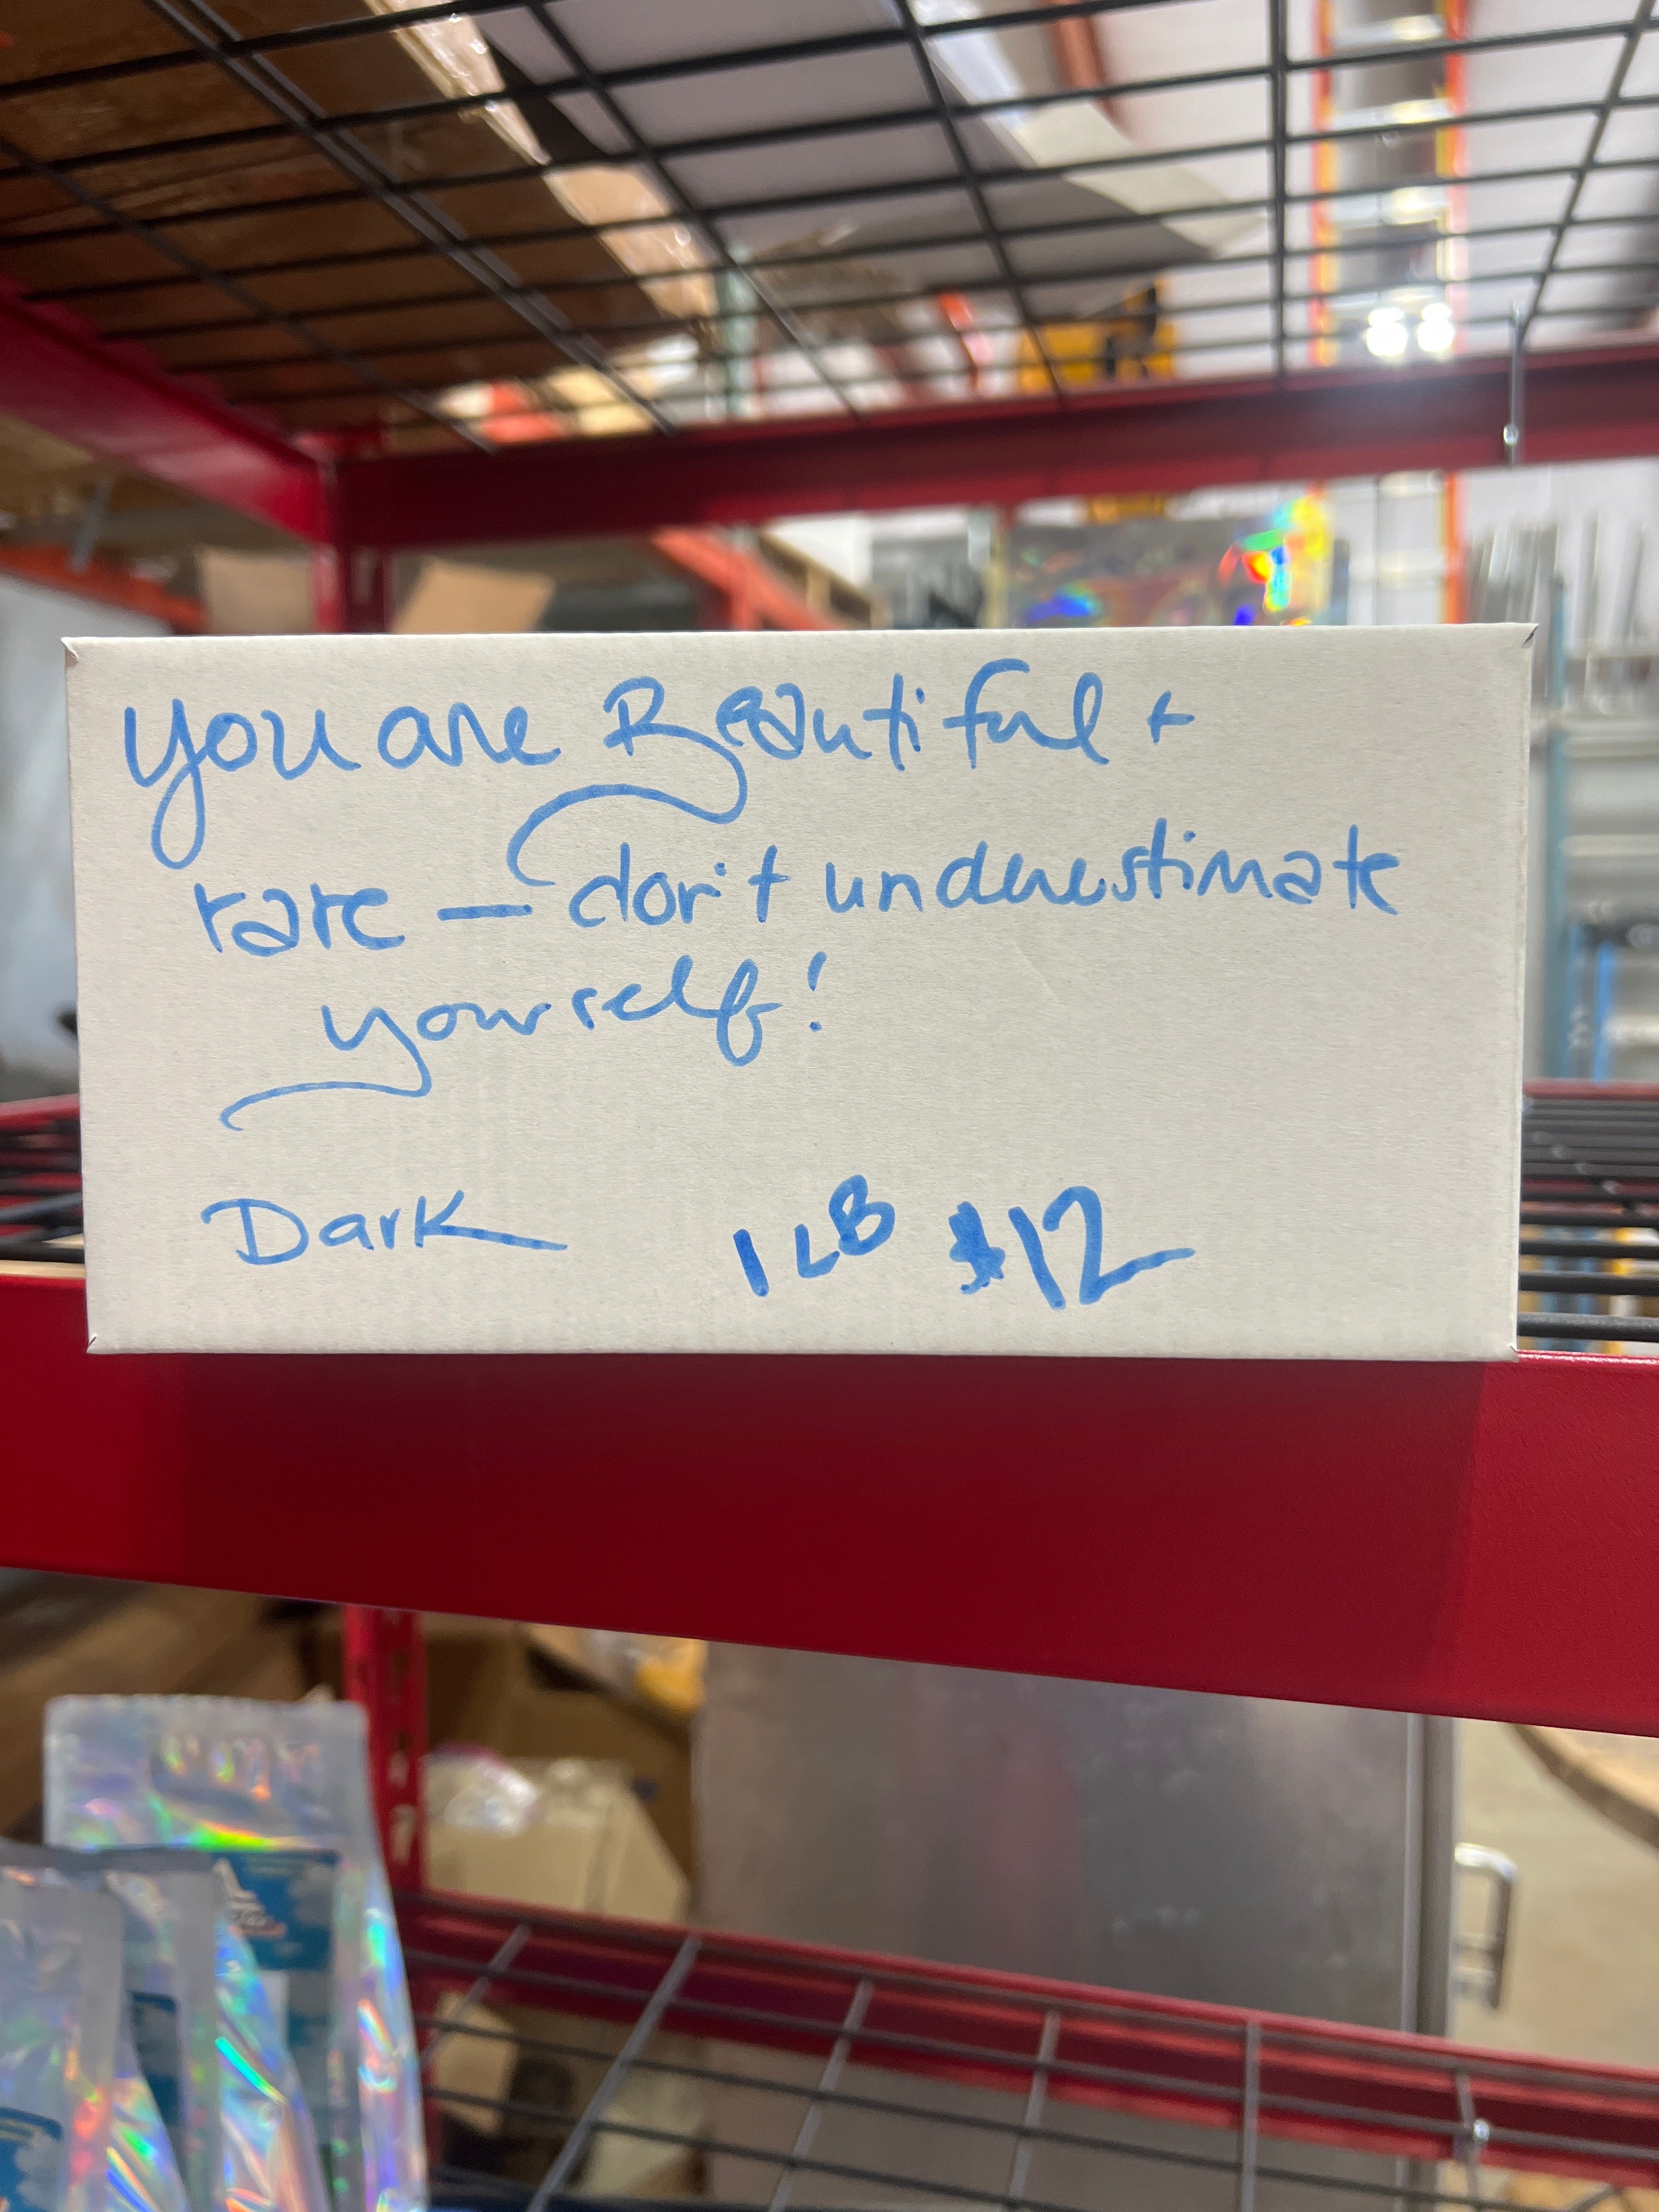 you are Beautiful +
rare — don't underestimate
yourself!
Dark 1 LB $12